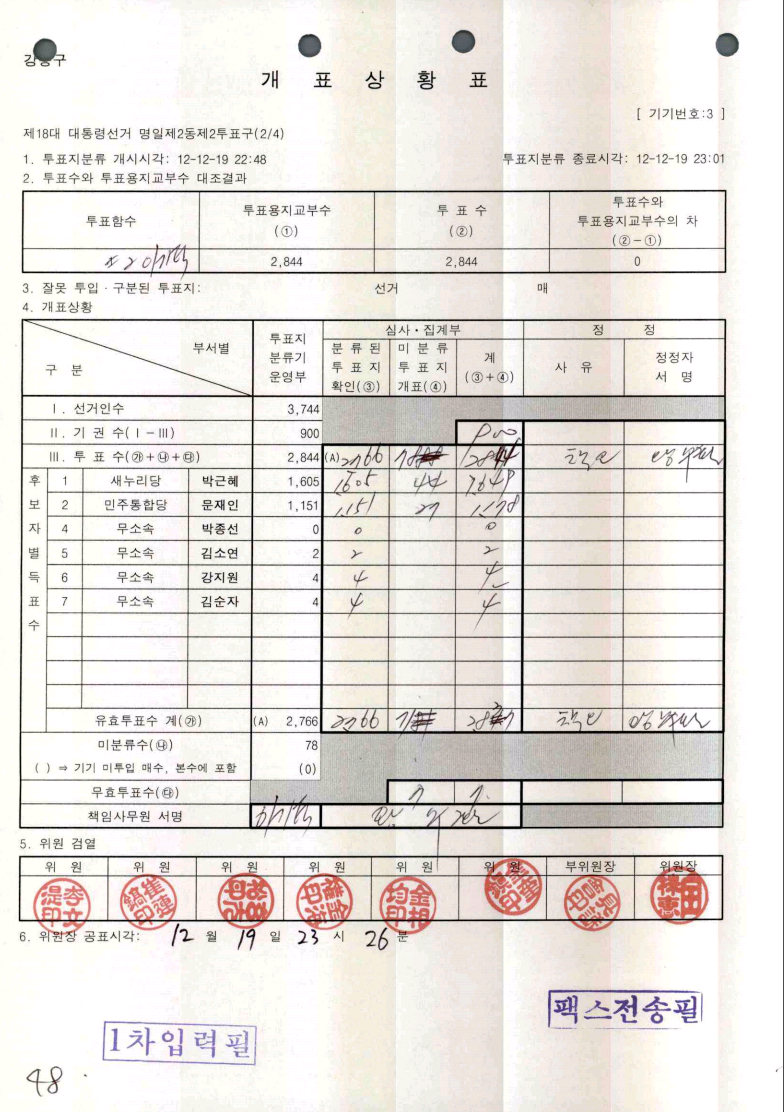 개 표 상 황 표
[ 기기번호:3 ]
제18대 대통령선거 명일제2동제2투표구(2/4)
1. 투표지분류 개시시각: 12-12-19 22:48 투표지분류 종료시각: 12-12-19 23:01
2. 투표수와 투표용지교부수 대조결과
투표함수 투표용지교부수 (①) 투 표 수 (②) 투표수와 투표용지교부수의 차 (②-①)
2,844 2,844 0
3. 잘못 투입·구분된 투표지: 선거 매
4. 개표상황
구 분 부서별 투표지 분류기 운영부 심사·집계부 정 정
분 류 된 투 표 지 확인(③) 미 분 류 투 표 지 개표(④) 계 (③+④) 사 유 정정자 서 명
Ⅰ. 선거인수 3,744
Ⅱ. 기 권 수(Ⅰ-Ⅲ) 900 900
Ⅲ. 투 표 수(㉮+㉯+㉰) 2,844 (A) 2766
후보자별득표수
1 새누리당 박근혜 1,605 1,605 44 1,649
2 민주통합당 문재인 1,151 1,151 27 1,178
4 무소속 박종선 0 0 0
5 무소속 김소연 2 2 2
6 무소속 강지원 4 4 4
7 무소속 김순자 4 4 4
유효투표수 계(㉮) (A) 2,766 2766
미분류수(㉯) 78
( ) ⇒ 기기 미투입 매수, 본수에 포함 (0)
무효투표수(㉰) 7 7
책임사무원 서명
5. 위원 검열
위 원 위 원 위 원 위 원 위 원 위 원 부위원장 위원장
6. 위원장 공표시각: 12 월 19 일 23 시 26 분
팩스전송필
1차입력필
48